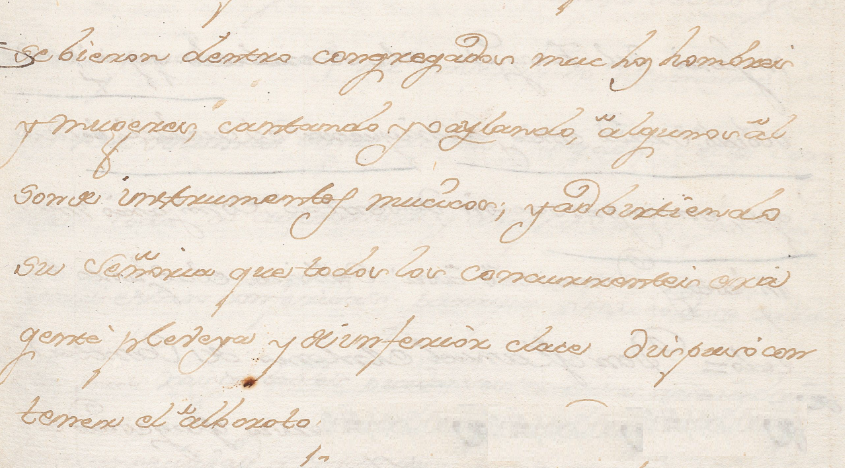 se bieron dentro congregados muchos hombres
y mugeres, cantando y baylando, algunos al
son de instrumentos mucicos; y adbirtiendo
su Señoria que todos los concurrentes era
gente pleveya y de inferior clace dispuso con
tener el alboroto